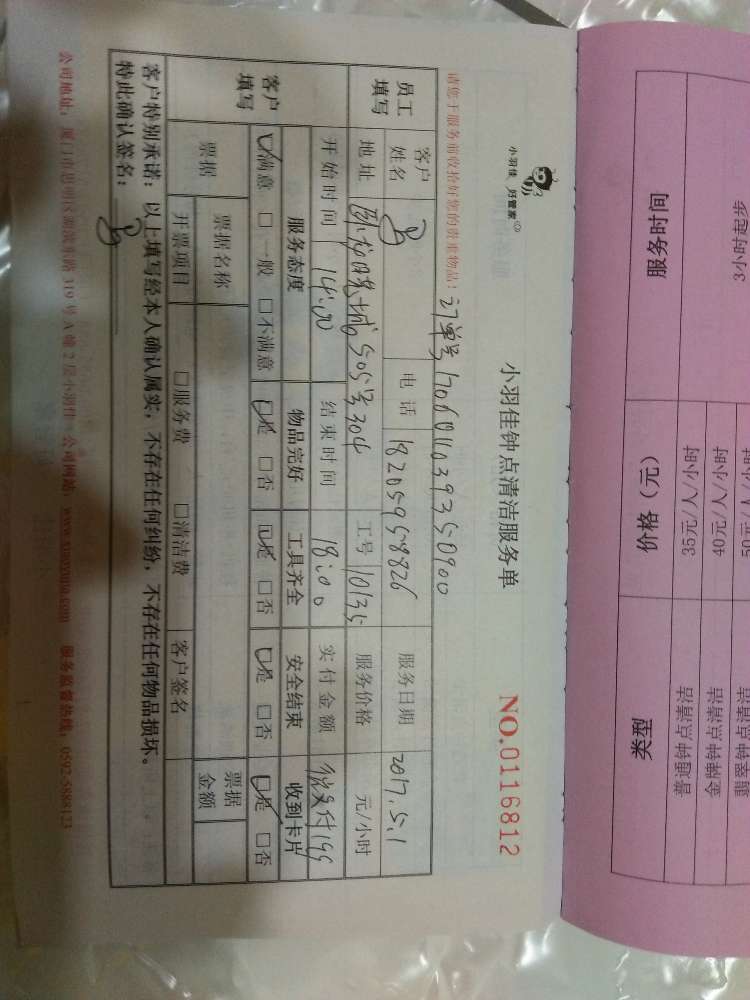 小羽佳 好管家
小羽佳钟点清洁服务单
NO.0116812
请您于服务前收拾好您的贵重物品!
订单号
员工填写 客户姓名 电话 18205958826 服务日期 2017.5.1
地址 卧龙晓城505号304 工号 10135 服务价格 元/小时
开始时间 14:00 结束时间 18:00 实付金额
客户填写 服务态度 物品完好 工具齐全 安全结束 收到卡片
☑满意 □一般 □不满意 ☑是 □否 ☑是 □否 ☑是 □否 ☑是 □否
票据 票据名称 票据金额
开票项目 □服务费 □清洁费 客户签名
客户特别承诺:以上填写经本人确认属实,不存在任何纠纷,不存在任何物品损坏。
特此确认签名:
公司地址:厦门市思明区湖滨东路319号A幢2层小羽佳 公司网站:www.xmxyujia.com 服务监督热线:0592-5888123
服务时间 价格(元) 类型
3小时起步 35元/人/小时 普通钟点清洁
40元/人/小时 金牌钟点清洁
50元/人/小时 翡翠钟点清洁